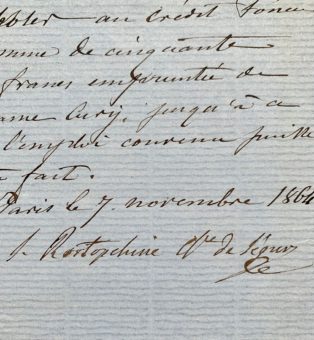 au crédit
omme de cinquante
francs empruntée de
ame Curij, jusqu'à ce
l'emploi convenu puisse
fait.
Paris le 7 novembre 1864
S. Rostopchine Ctsse de Ségur